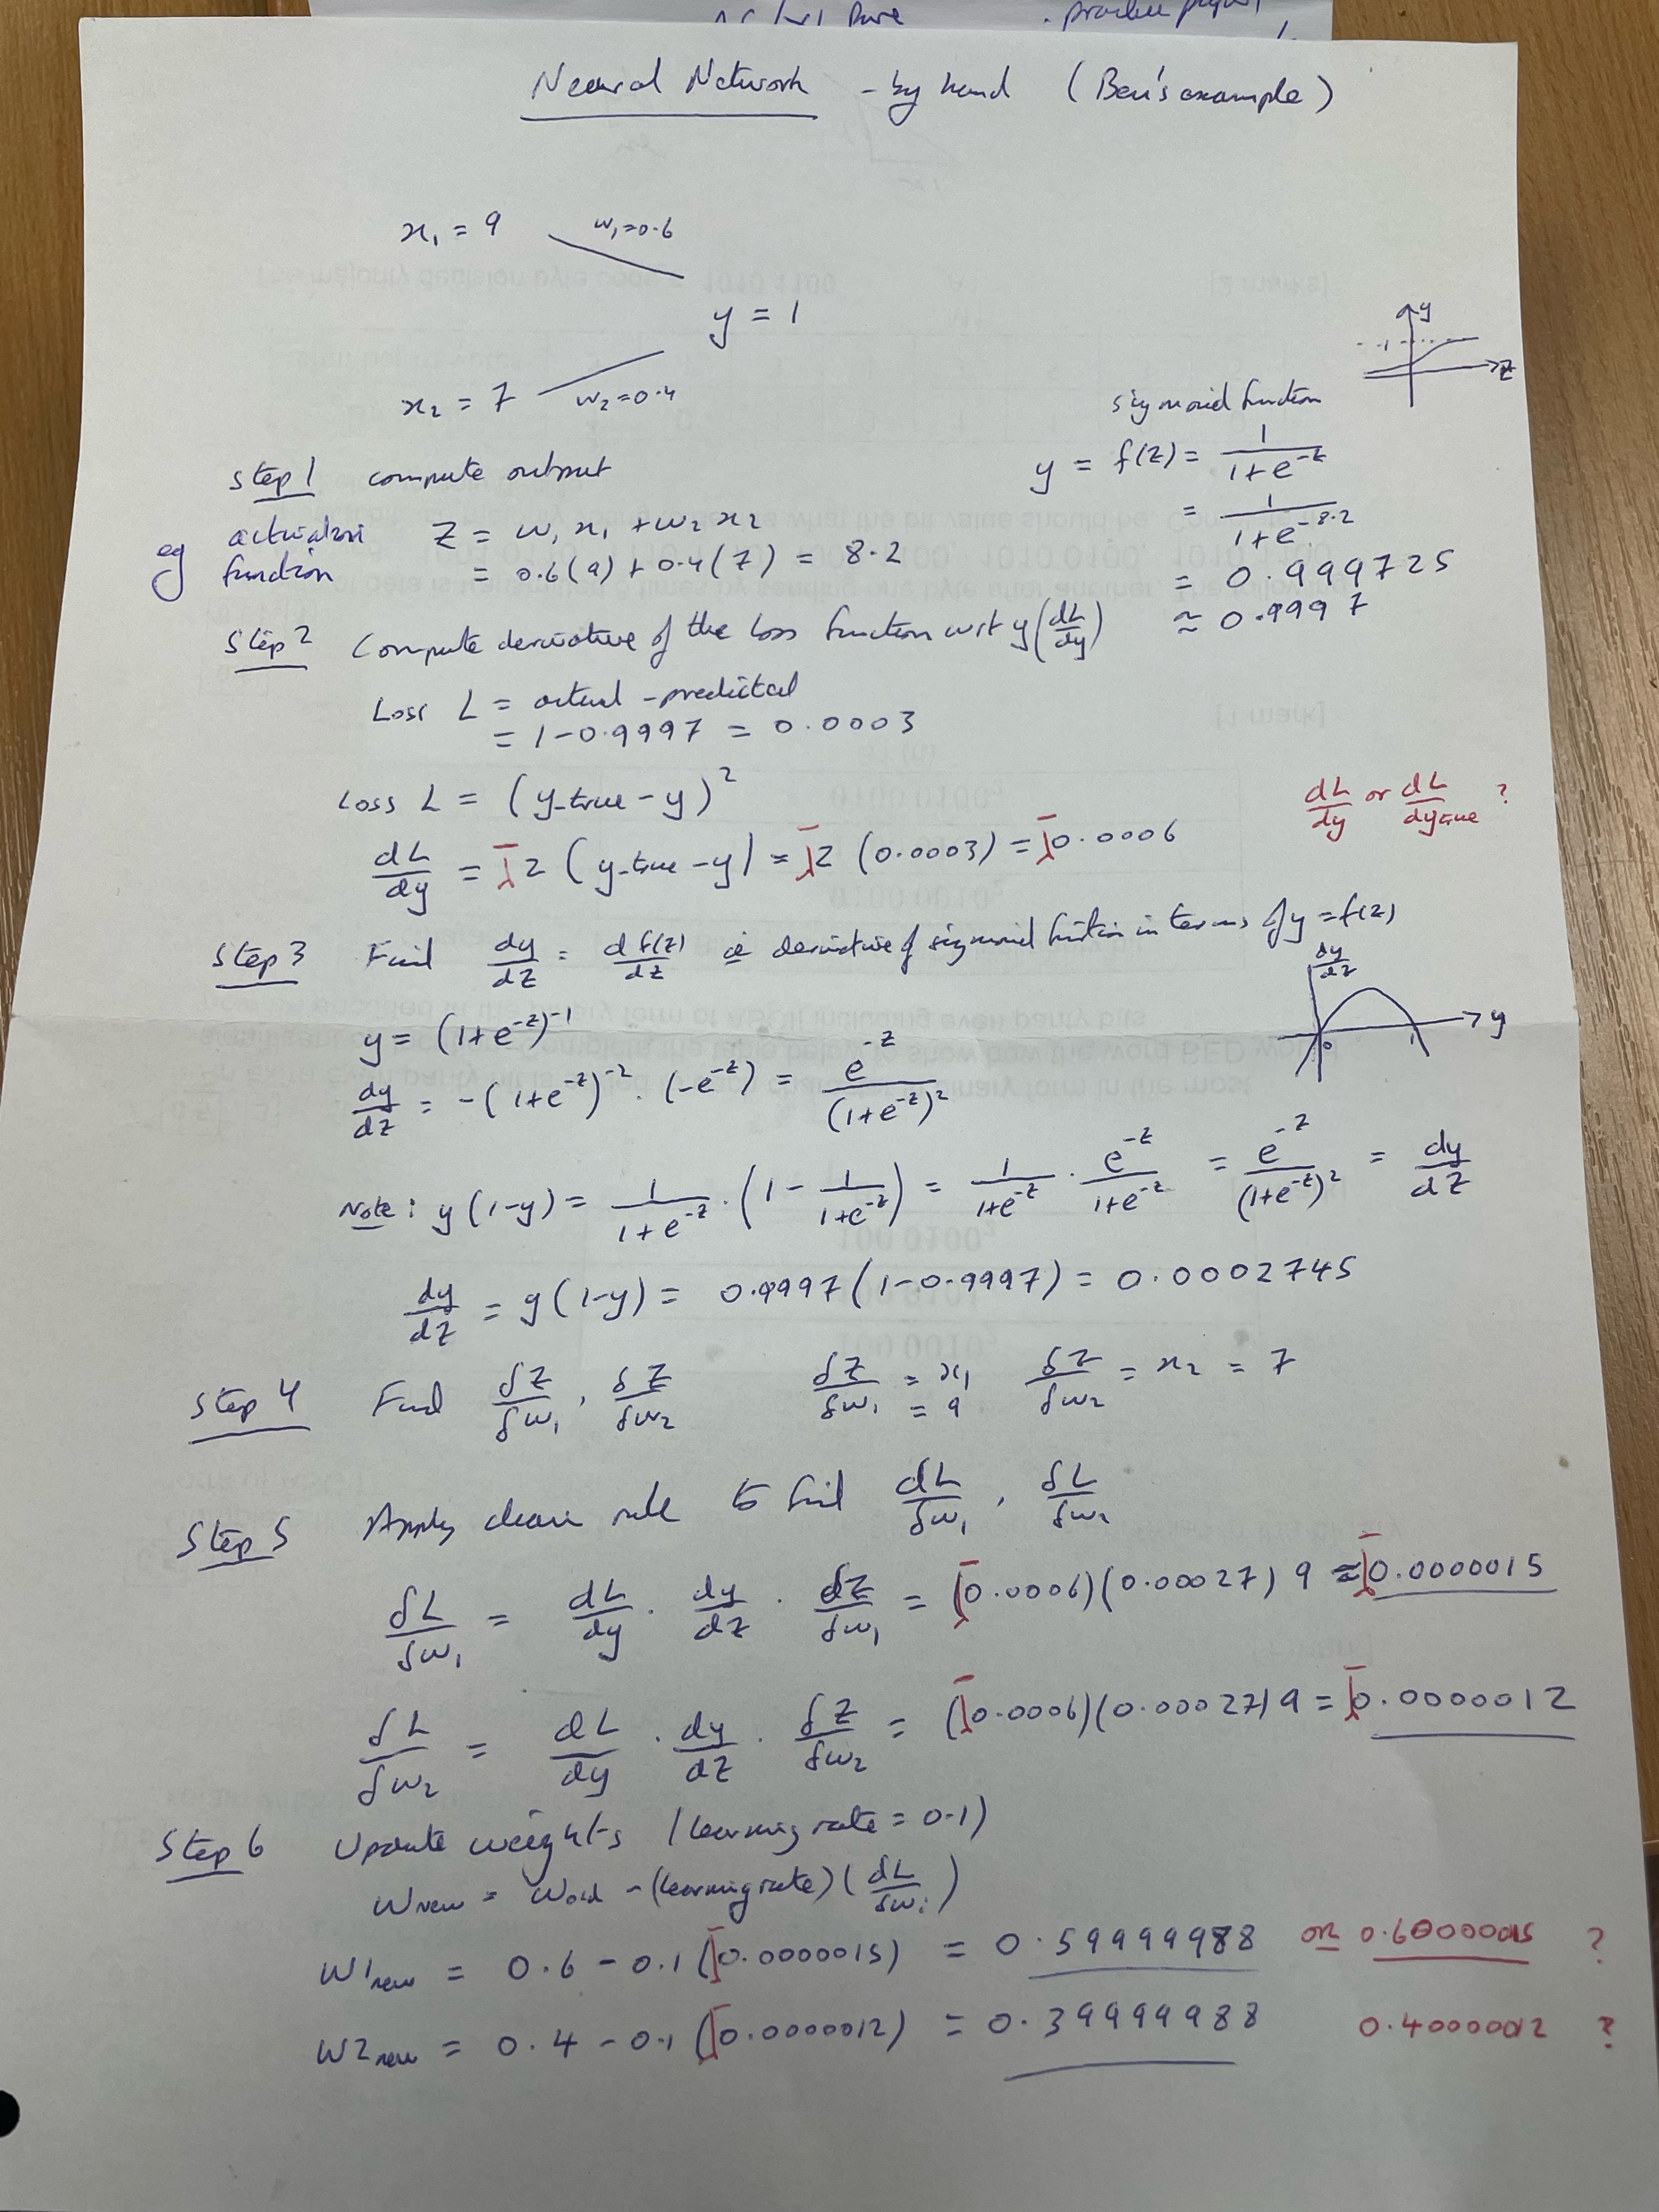 practice paper
Neural Network - by hand (Ben's example)
x₁ = 9 w₁=0.6
y = 1
x₂ = 7 w₂=0.4
y
1
z
sigmoid function
y = f(z) = 1/(1+e^-z)
= 1/(1+e^-8.2)
= 0.999725
≈ 0.9997
Step 1 compute output
eg activation function z = w₁x₁ + w₂x₂
= 0.6(9) + 0.4(7) = 8.2
Step 2 Compute derivative of the loss function wrt y (dL/dy)
Loss L = actual - predicted
= 1-0.9997 = 0.0003
Loss L = (y_true - y)²
dL/dy = -2 (y_true - y) = -2 (0.0003) = -0.0006
dL/dy or dL/dytrue ?
Step 3 Find dy/dz = d f(z)/dz ie derivative of sigmoid function in terms of y = f(z)
dy/dz
y
0 1
y = (1+e^-z)^-1
dy/dz = -(1+e^-z)^-2 . (-e^-z) = e^-z/(1+e^-z)²
Note: y(1-y) = 1/(1+e^-z) . (1 - 1/(1+e^-z)) = 1/(1+e^-z) . e^-z/(1+e^-z) = e^-z/(1+e^-z)² = dy/dz
dy/dz = y(1-y) = 0.9997(1-0.9997) = 0.0002745
Step 4 Find δz/δw₁, δz/δw₂ δz/δw₁ = x₁ = 9 δz/δw₂ = x₂ = 7
Step 5 Apply chain rule to find dL/δw₁, δL/δw₂
δL/δw₁ = dL/dy . dy/dz . dz/δw₁ = (-0.0006)(0.00027) 9 ≈ -0.0000015
δL/δw₂ = dL/dy . dy/dz . δz/δw₂ = (-0.0006)(0.00027) 9 = -0.0000012
Step 6 Update weights (learning rate = 0.1)
Wnew = Wold - (learning rate)(dL/δwᵢ)
W1new = 0.6 - 0.1(-0.0000015) = 0.59999988 or 0.60000015 ?
W2new = 0.4 - 0.1(-0.0000012) = 0.39999988 0.4000012 ?